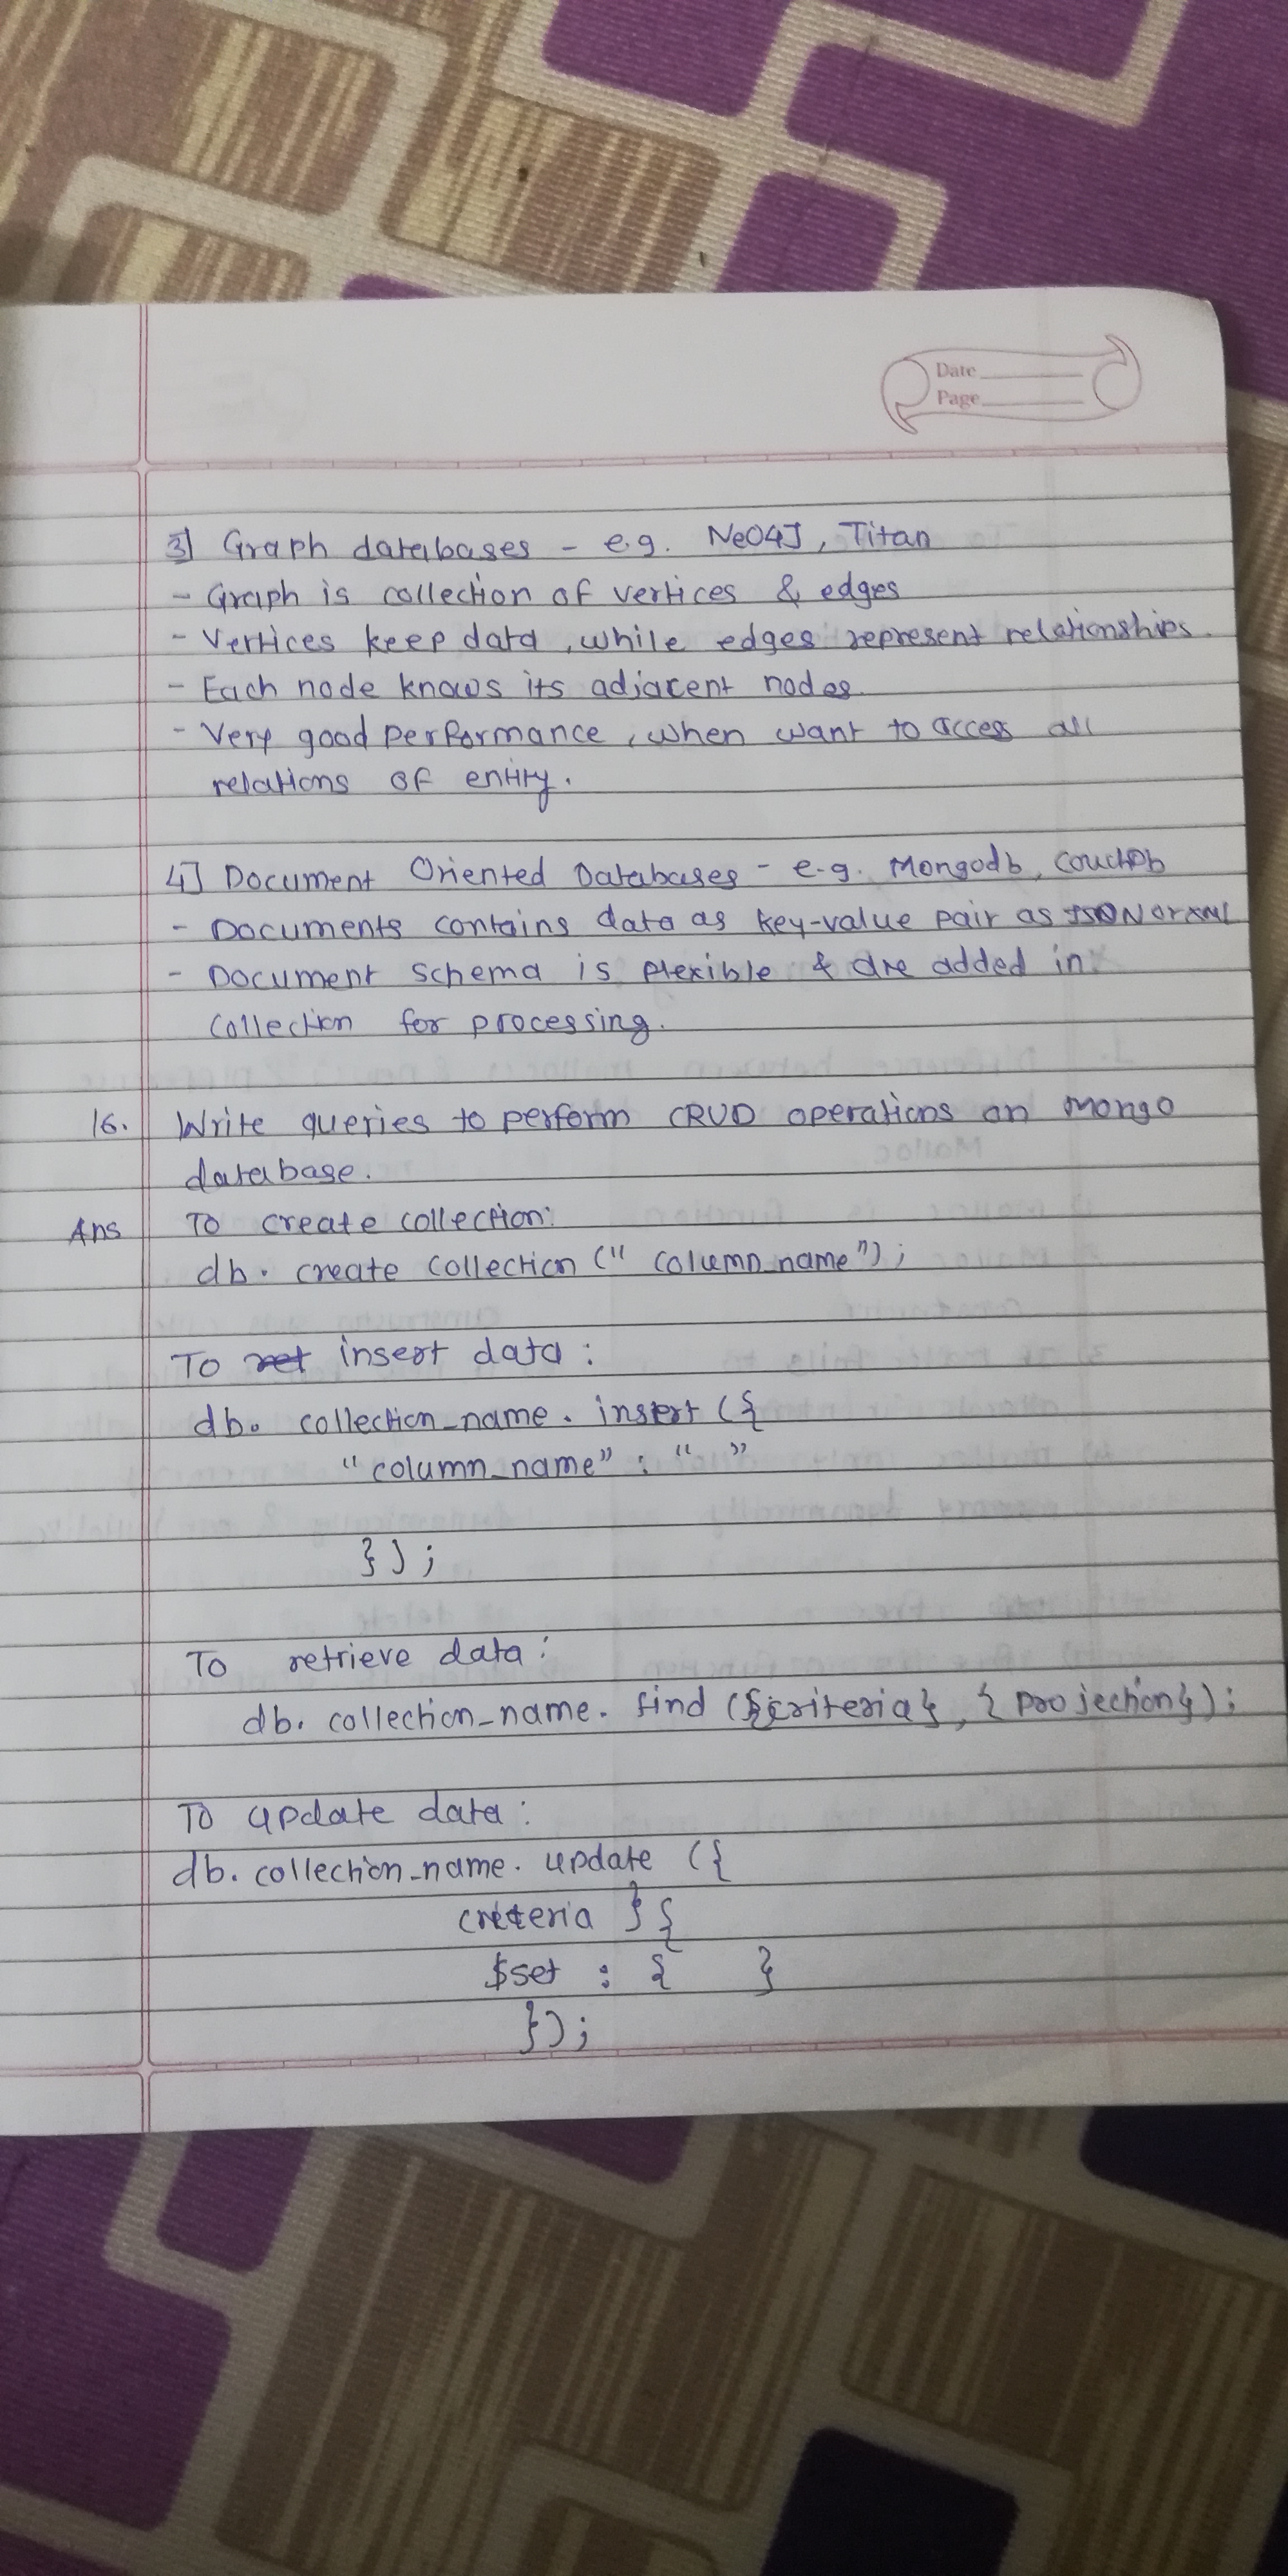 Date
Page
3] Graph databases - e.g. Neo4J, Titan
- Graph is collection of vertices & edges
- Vertices keep data, while edges represent relationships.
- Each node knows its adjacent nodes.
- Very good performance, when want to access all
relations of entity.
4] Document Oriented Databases - e.g. Mongodb, CouchDb
- Documents contains data as key-value pair as JSON or XML
- Document schema is flexible & are added in
collection for processing.
16. Write queries to perform CRUD operations on mongo
database.
Ans To create collection:
db. create collection (" column_name");
To ret insert data :
db. collection_name. insert ({
"column_name" : " "
});
To retrieve data :
db. collection_name. find ({criteria}, {projection});
To update data :
db. collection_name. update ({
criteria } {
$set : { }
});